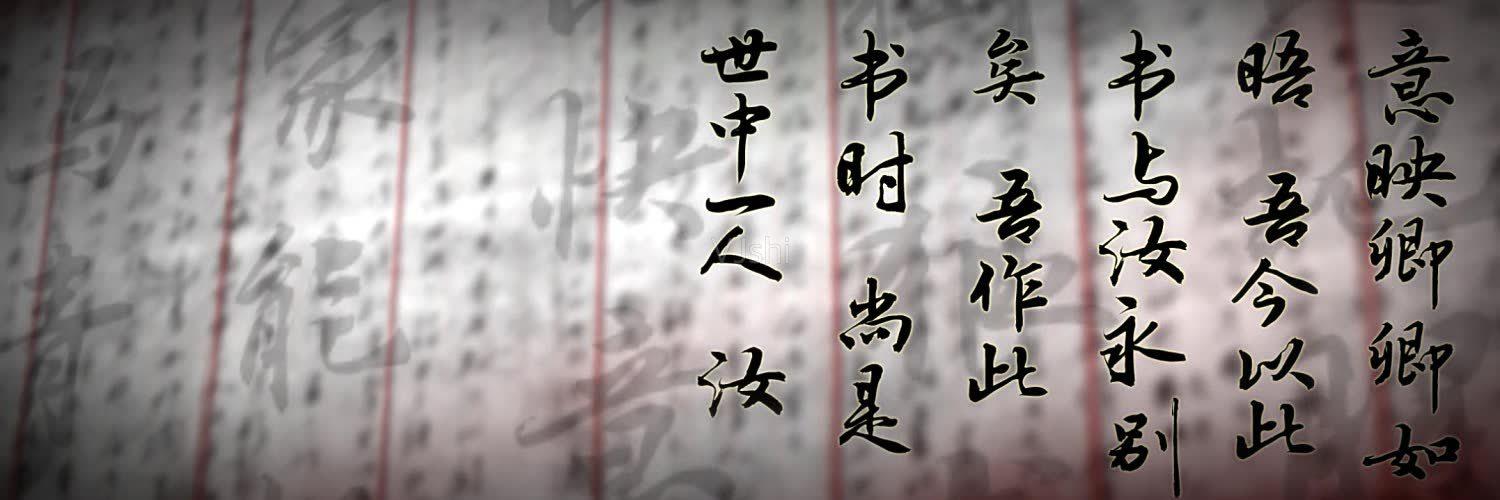 意映卿卿如
晤 吾今以此
书与汝永别
矣 吾作此
书时 尚是
世中一人 汝